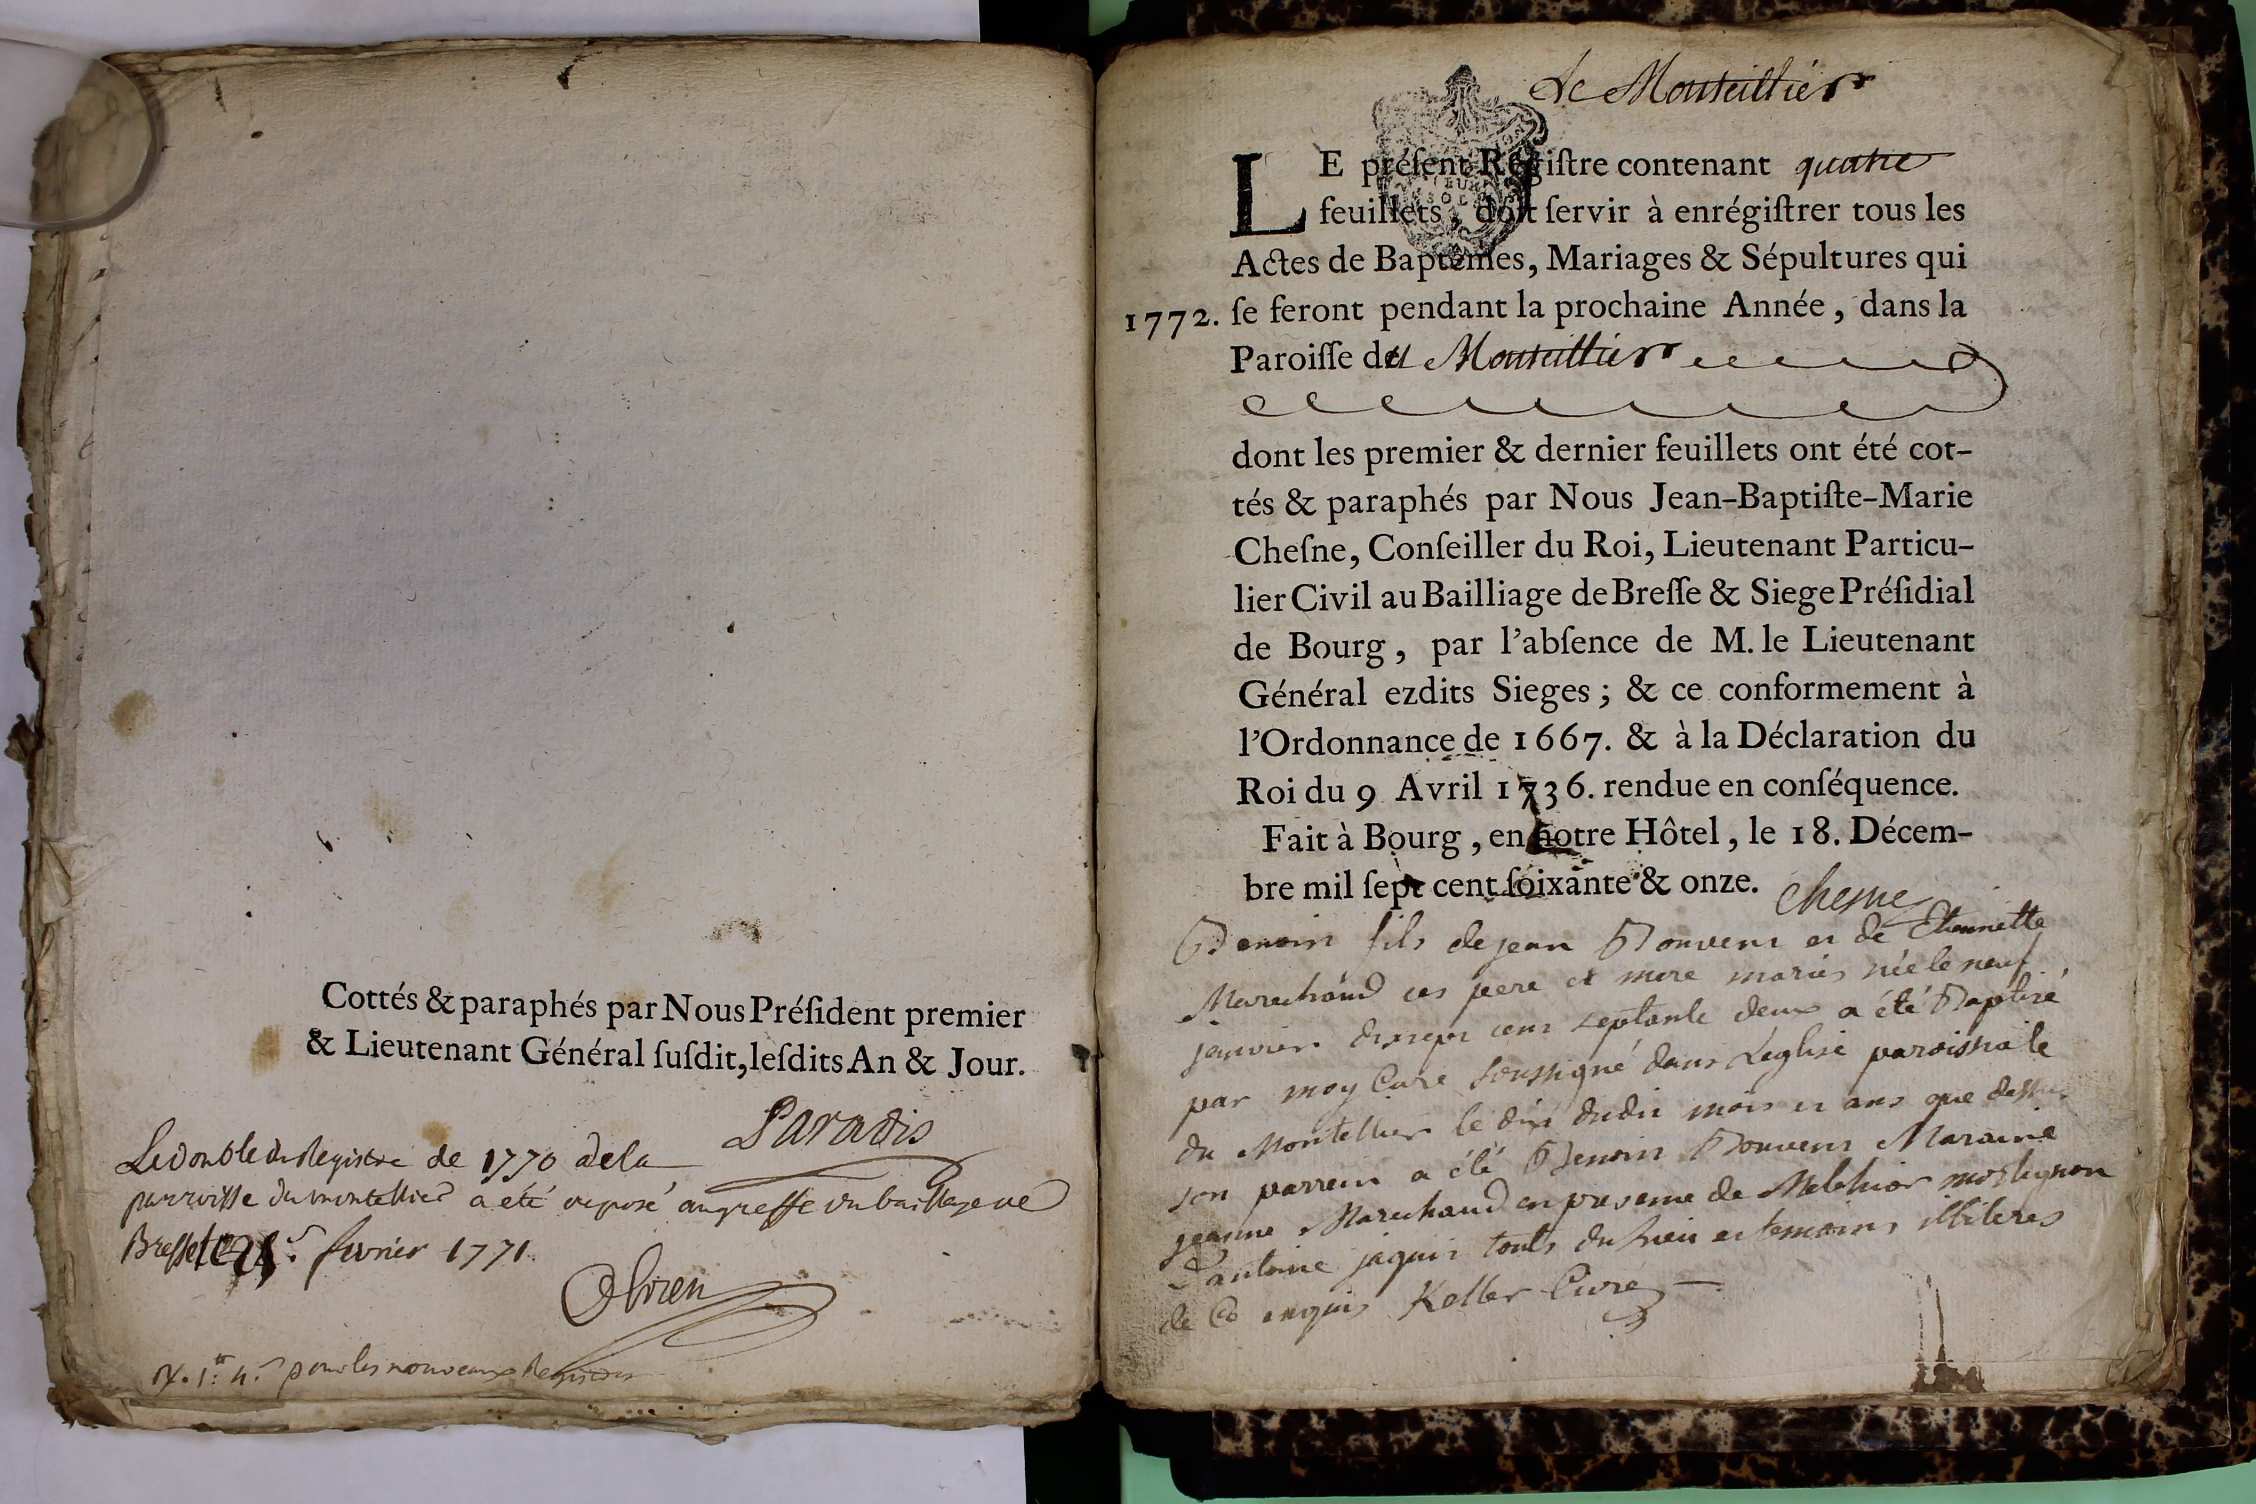 Cottés & paraphés par Nous Préſident premier
& Lieutenant Général ſuſdit, leſdits An & Jour.
Paradis
Le double du Registre de 1770 de la
parroisse du montellier a été deposé au greffe du bailliage de
Bresse le février 1771.
pour les nouveaux Registres
Le Monteillier
LE préſent Régiſtre contenant quatre
feuillets, doit ſervir à enrégiſtrer tous les
Actes de Baptêmes, Mariages & Sépultures qui
1772. ſe feront pendant la prochaine Année, dans la
Paroiſſe du Monteillier
dont les premier & dernier feuillets ont été cot-
tés & paraphés par Nous Jean-Baptiſte-Marie
Cheſne, Conſeiller du Roi, Lieutenant Particu-
lier Civil au Bailliage de Breſſe & Siege Préſidial
de Bourg, par l'abſence de M. le Lieutenant
Général ezdits Sieges; & ce conformement à
l'Ordonnance de 1667. & à la Déclaration du
Roi du 9 Avril 1736. rendue en conſéquence.
Fait à Bourg, en notre Hôtel, le 18. Décem-
bre mil ſept cent ſoixante & onze.
Chesne
Benoin fils de jean Bouvent et de Etiennette
Marechaud ces pere et mere mariés née le neuf
janvier dixsept cens septante deux a été Baptisé
par moy Curé soussigné dans Leglise paroissiale
du Montellier le dix dudit mois et ans que dessus
son parrein a été Benoin Bouvent Maraine
jeanne Marechaud en presence de Melchior
antoine jaquin touts du lieu et temoins illiteres
de Ce enquis Keller Curé